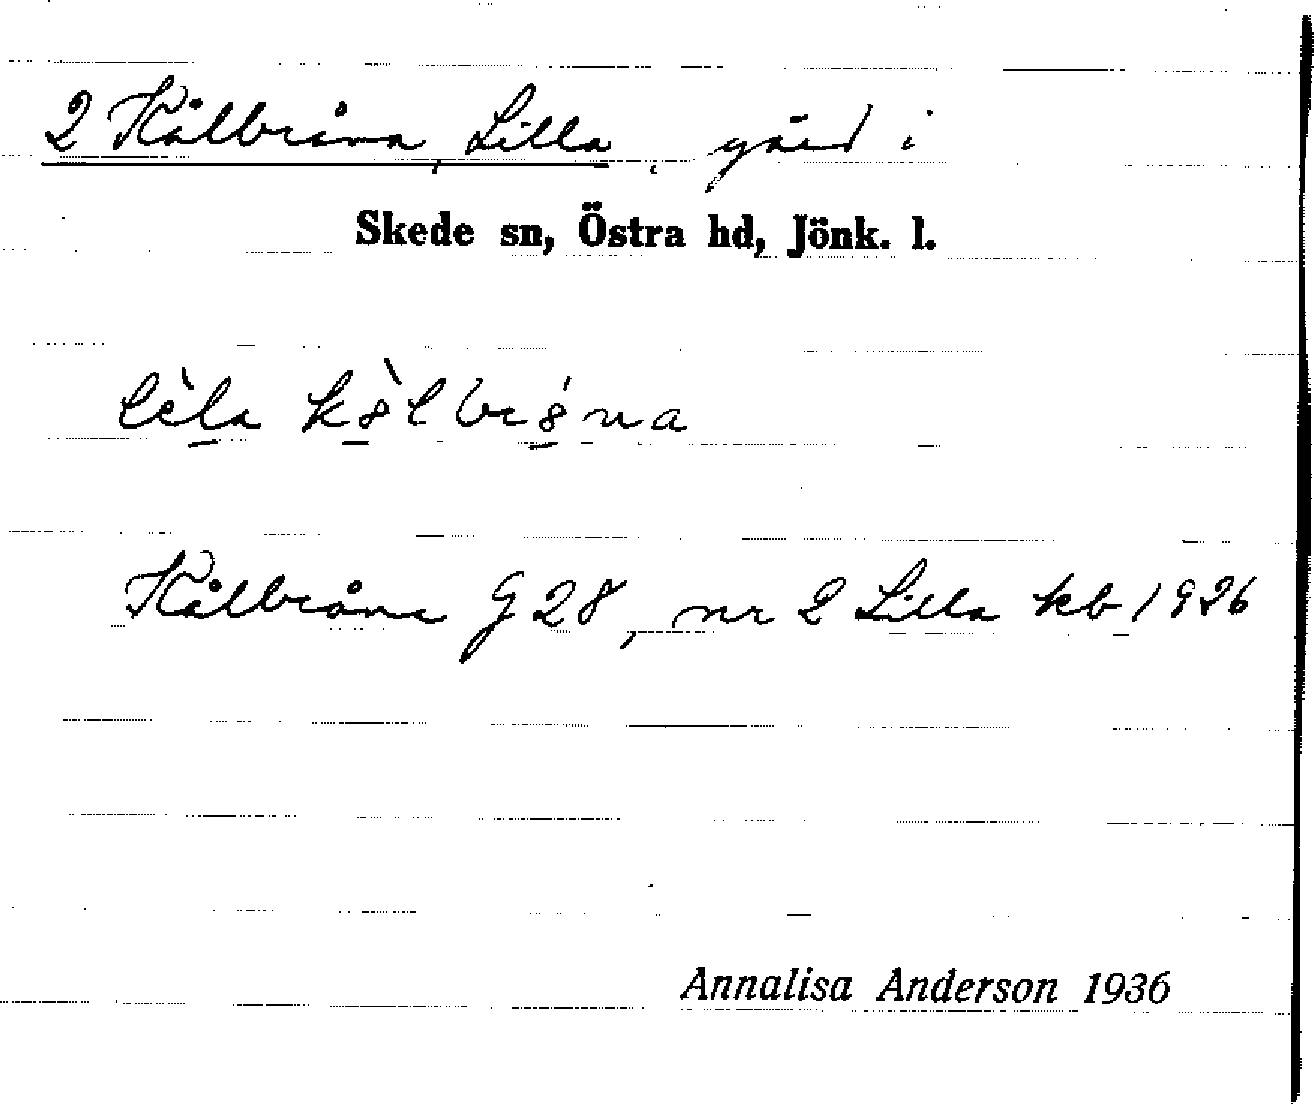 2 Kålbråna, Lilla, gård i
Skede sn, Östra hd, Jönk. l.
lèla kòlbróna
Kålbråna G 28, nr 2 Lilla kb 1926
Annalisa Anderson 1936